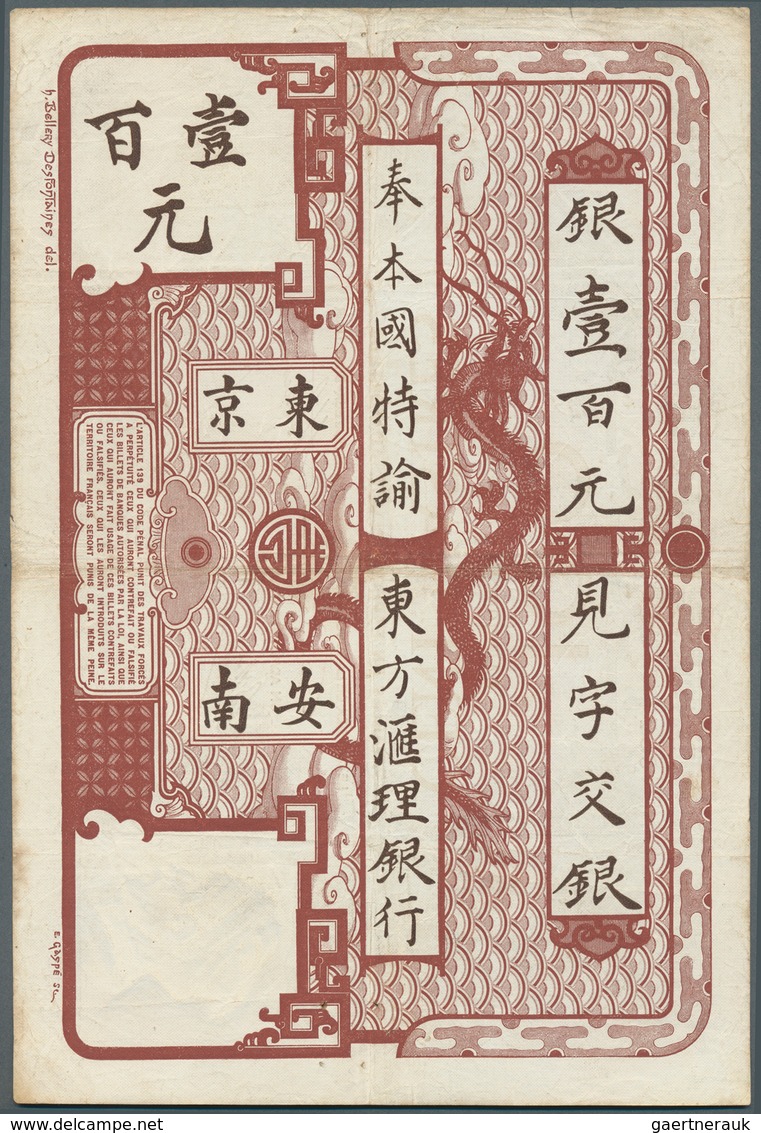 銀壹百元見字交銀
奉本國特諭東方滙理銀行
壹百元
東京
安南
L'ARTICLE 139 DU CODE PENAL PUNIT DES TRAVAUX FORCÉS
A PERPÉTUITÉ CEUX QUI AURONT CONTREFAIT OU FALSIFIÉ
LES BILLETS DE BANQUES AUTORISÉES PAR LA LOI, AINSI QUE
CEUX QUI AURONT FAIT USAGE DE CES BILLETS CONTREFAITS
OU FALSIFIÉS. CEUX QUI LES AURONT INTRODUITS SUR LE
TERRITOIRE FRANÇAIS SERONT PUNIS DE LA MÊME PEINE.
h. Bellery Desfontaines del.
E. Gaspé Sc
gaertnerauk
gaertnerauk